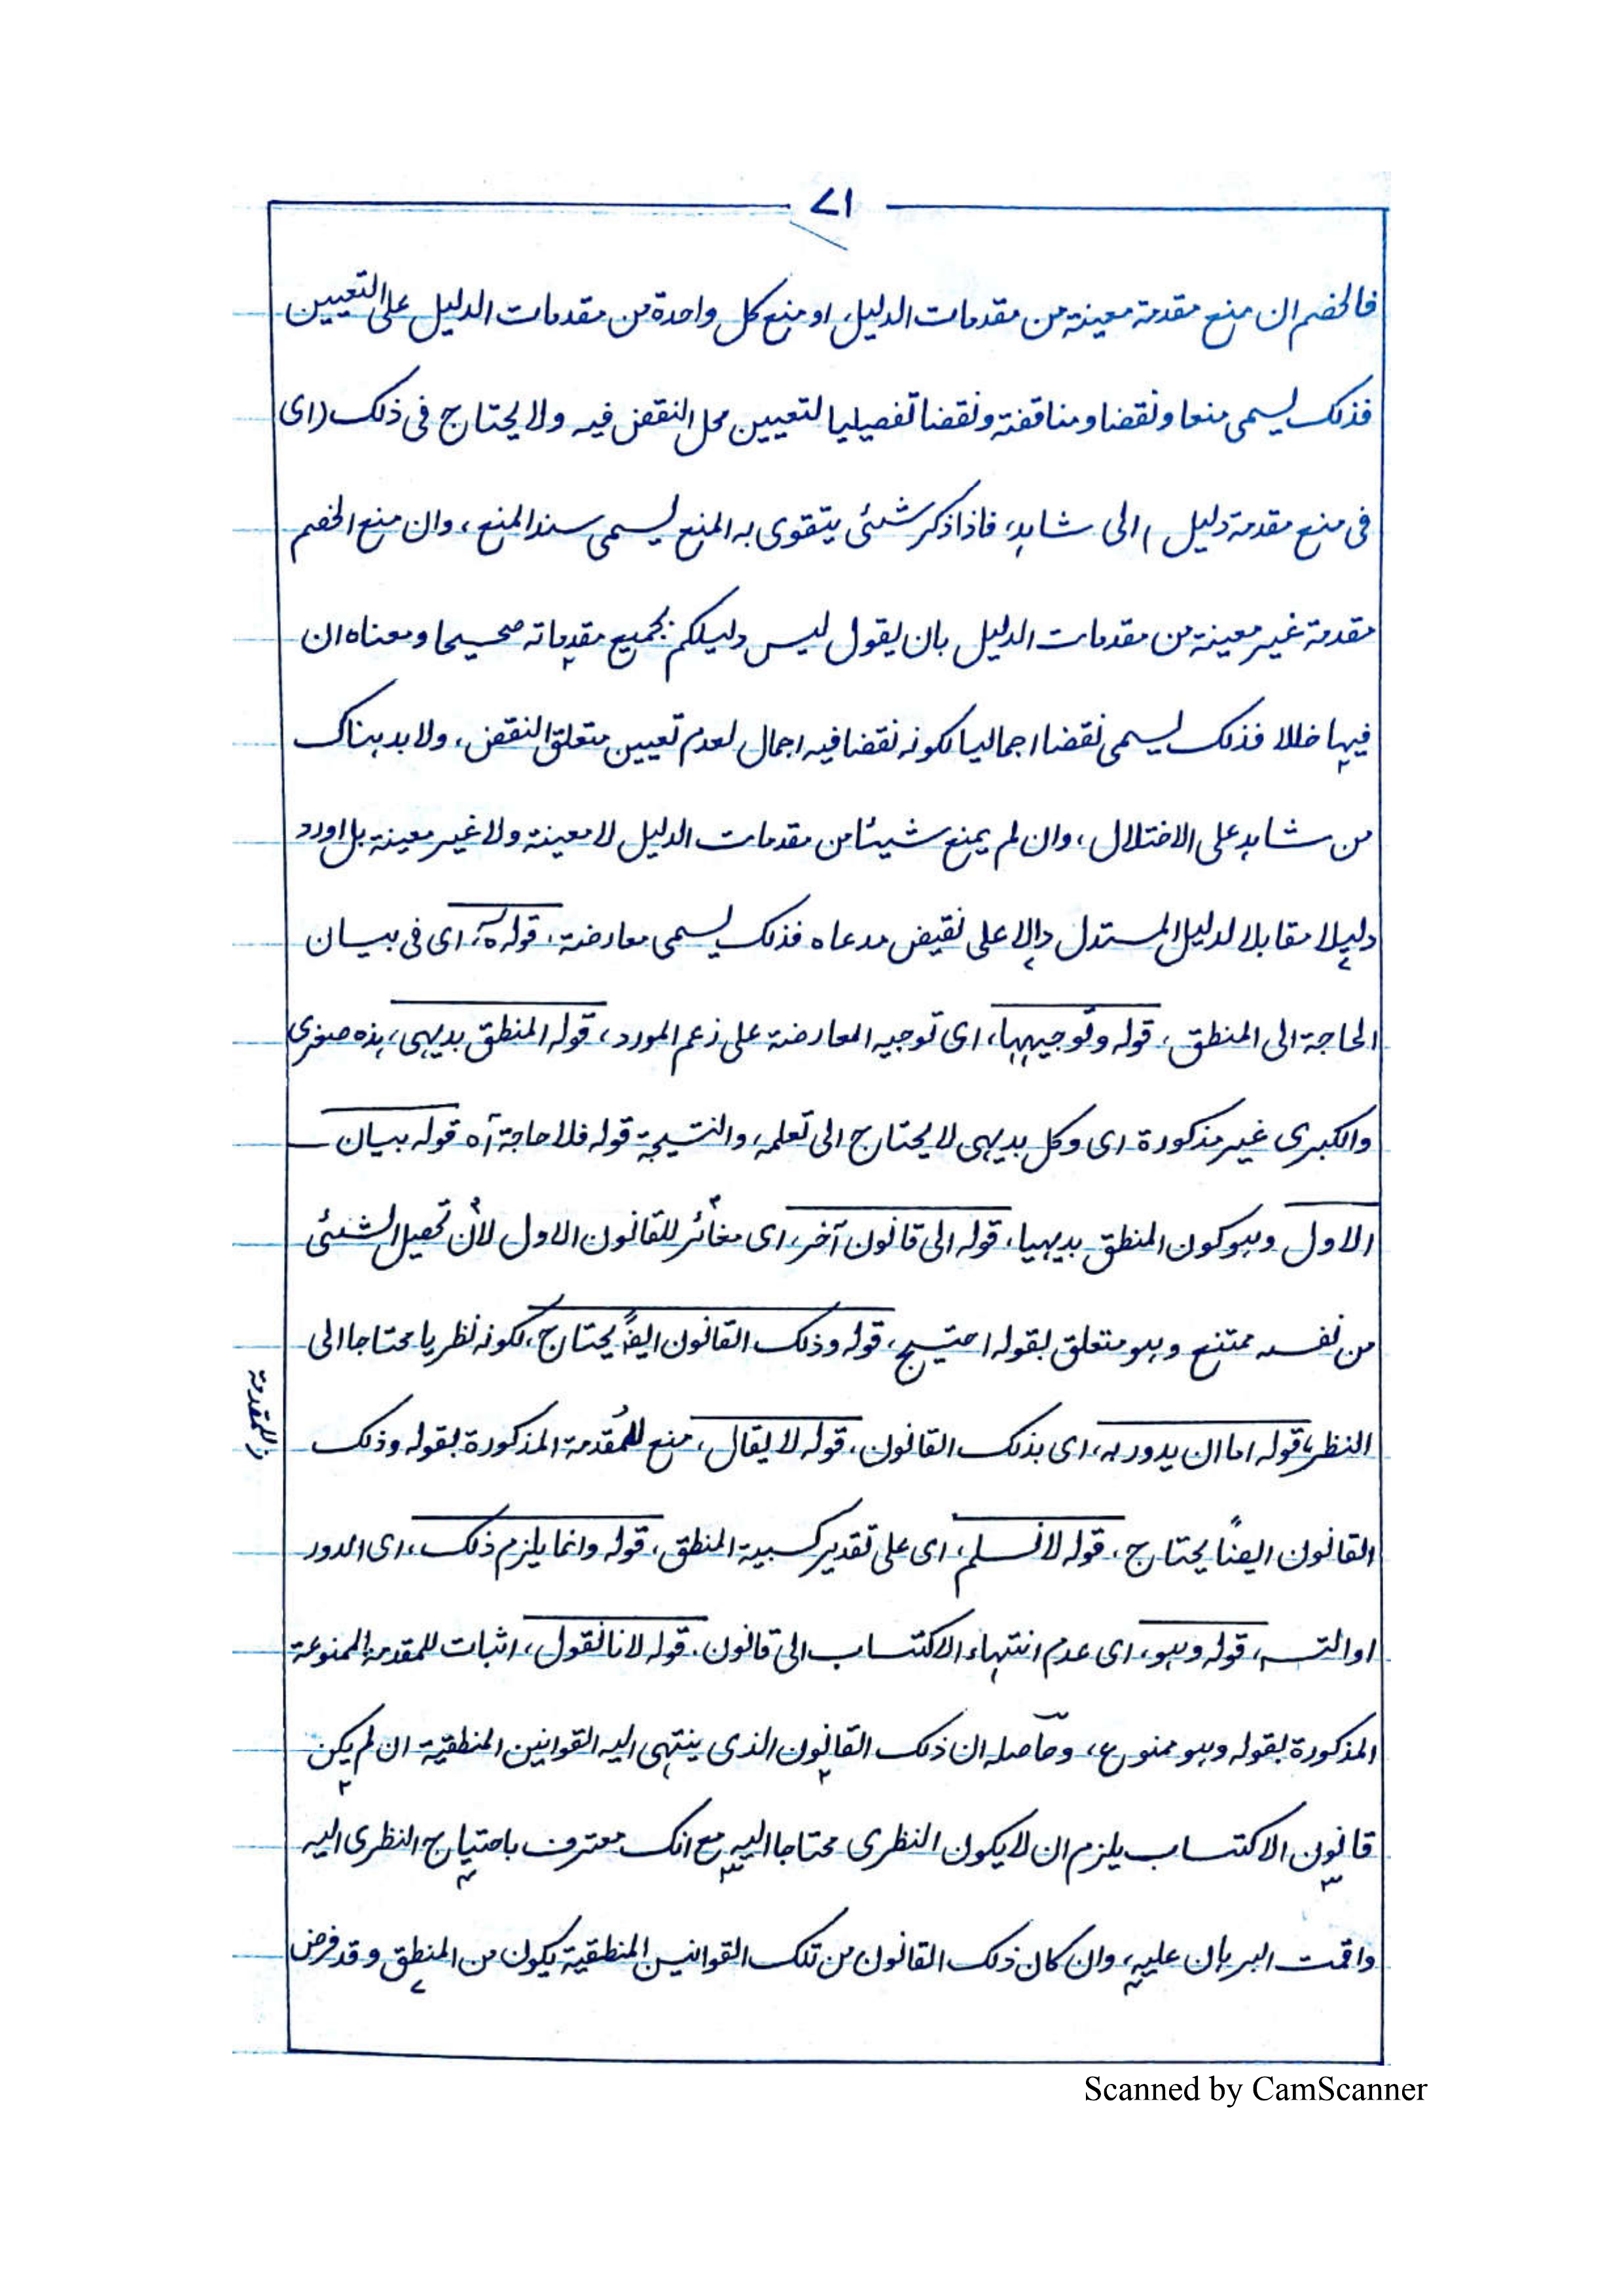 ۷۱
فالخصم ان منع مقدمة معينة من مقدمات الدليل، او منع كل واحدة من مقدمات الدليل على التعيين
فذلك يسمى منعا ونقضا ومناقضة ونقضا تفصيليا لتعيين محل النقض فيه ولا يحتاج فى ذلك (اى
فى منع مقدمة دليل) الى شاهد، فاذا ذكر شئى يتقوى به المنع يسمى سند المنع، وان منع الخصم
مقدمة غير معينة من مقدمات الدليل بان يقول ليس دليلكم بجميع مقدماته صحيحا ومعناه ان
فيها خللا فذلك يسمى نقضا اجماليا لكونه نقضا فيه اجمال لعدم تعيين متعلق النقض، ولا بد هناك
من شاهد على الاختلال، وان لم يمنع شيئا من مقدمات الدليل لا معينة ولا غير معينة بل اورد
دليلا مقابلا لدليل المستدل دالا على نقيض مدعاه فذلك يسمى معارضة، قوله ، اى فى بيان
الحاجة الى المنطق، قوله وتوجيهها، اى توجيه المعارضة على زعم المورد، قوله المنطق بديهى، هذه صغرى
والكبرى غير مذكورة اى وكل بديهى لا يحتاج الى تعلمه، والنتيجة قوله فلا حاجة آه قوله بيان
الاول وهو كون المنطق بديهيا، قوله الى قانون آخر، اى مغائر للقانون الاول لأن تحصيل الشئى
من نفسه ممتنع وهو متعلق بقوله احتيج، قوله وذلك القانون ايضًا يحتاج، لكونه نظريا محتاجا الى
النظر، قوله اما ان يدور به، اى بذلك القانون، قوله لا يقال، منع للمقدمة المذكورة بقوله وذلك
للمقدمة
القانون ايضًا يحتاج، قوله لا نسلم، اى على تقدير كسبية المنطق، قوله وانما يلزم ذلك، اى الدور
او التسـ، قوله وهو، اى عدم انتهاء الاكتساب الى قانون. قوله لانا نقول، اثبات للمقدمة الممنوعة
المذكورة بقوله وهو ممنوع، وحاصله ان ذلك القانون الذى ينتهى اليه القوانين المنطقية ان لم يكن
قانون الاكتساب يلزم ان لا يكون النظرى محتاجا اليه مع انك معترف باحتياج النظرى اليه
واقمت البرهان عليه، وان كان ذلك القانون من تلك القوانين المنطقية يكون من المنطق وقد فرض
Scanned by CamScanner